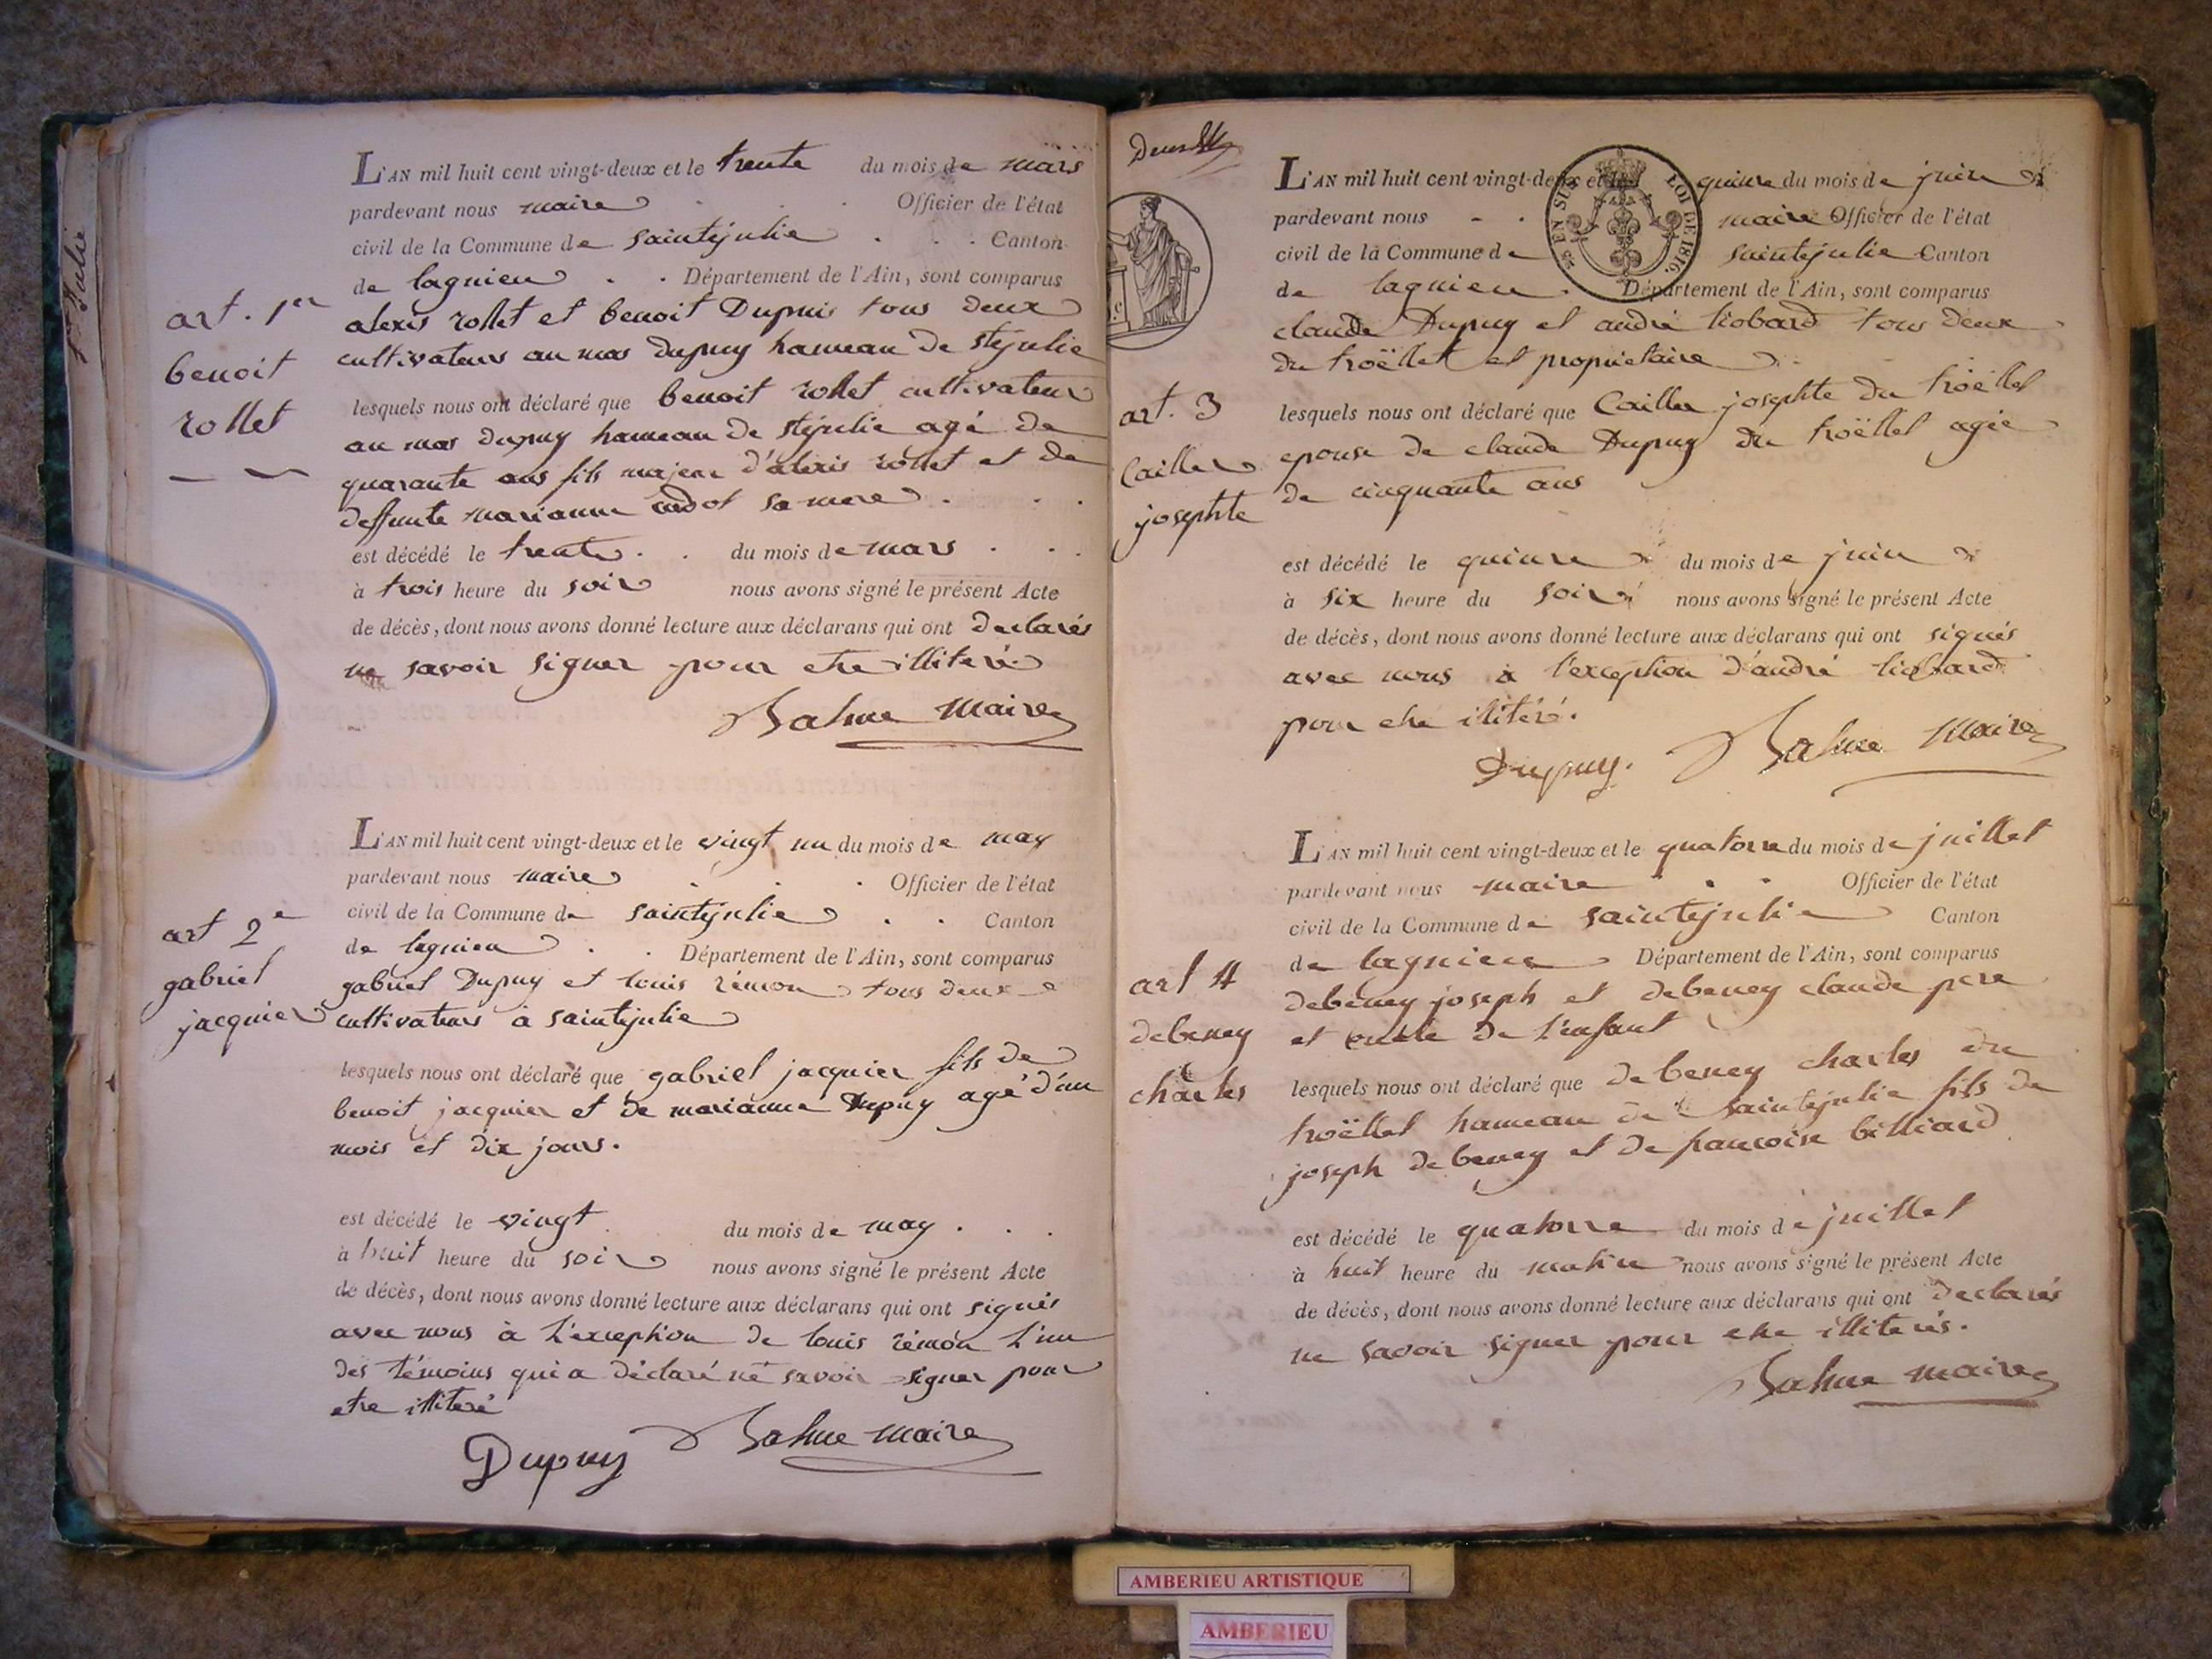 Ste Julie
L'AN mil huit cent vingt-deux et le trente du mois de mars
pardevant nous maire Officier de l'état
civil de la Commune de saintejulie Canton
de lagnieu Département de l'Ain, sont comparus
art. 1er
alexis rollet et benoit Dupuis tous deux
benoit
cultivateurs au mas dupuy hameau de stejulie
rollet
lesquels nous ont déclaré que benoit rollet cultivateur
au mas dupuy hameau de stejulie agé de
quarante ans fils majeur d'alexis rollet et de
deffunte marianne sa mere
est décédé le trente du mois de mars
à trois heure du soir nous avons signé le présent Acte
de décès, dont nous avons donné lecture aux déclarans qui ont declarés
ne savoir signer pour etre illiteré
maire
L'AN mil huit cent vingt-deux et le vingt un du mois de may
pardevant nous maire Officier de l'état
civil de la Commune de saintejulie Canton
art 2e
de lagnieu Département de l'Ain, sont comparus
gabriel
gabriel Dupuy et louis rémon tous deux
jacquier
cultivateurs a saintejulie
lesquels nous ont déclaré que gabriel jacquier fils de
benoit jacquier et de marianne Dupuy agé d'un
mois et dix jours.
est décédé le vingt du mois de may
à huit heure du soir nous avons signé le présent Acte
de décès, dont nous avons donné lecture aux déclarans qui ont signés
avec nous à l'exception de louis rémon l'un
des témoins qui a déclaré ne savoir signer pour
etre illiteré
Dupuy maire
L'AN mil huit cent vingt-deux et le quinze du mois de juin
EN SUS LOI DE 1816.
pardevant nous maire Officier de l'état
civil de la Commune de saintejulie Canton
de lagnieu Département de l'Ain, sont comparus
claude Dupuy et andré liobard tous deux
du troëllet et proprietaire
art. 3
lesquels nous ont déclaré que Cailler josephte du troëllet
Cailler
epouse de claude Dupuy du troëllet agée
josephte
de cinquante ans
est décédé le quinze du mois de juin
à six heure du soir nous avons signé le présent Acte
de décès, dont nous avons donné lecture aux déclarans qui ont signés
avec nous à l'exception d'andré liobard
pour etre ilitéré.
Dupuy. maire
L'AN mil huit cent vingt-deux et le quatorze du mois de juillet
pardevant nous maire Officier de l'état
civil de la Commune de saintejulie Canton
art 4
de lagnieu Département de l'Ain, sont comparus
debeney joseph et debeney claude pere
debeney
et oncle de l'enfant
charles
lesquels nous ont déclaré que debeney charles du
troëllet hameau de saintejulie fils de
joseph debeney et de francoise billiard
est décédé le quatorze du mois de juillet
à huit heure du matin nous avons signé le présent Acte
de décès, dont nous avons donné lecture aux déclarans qui ont declarés
ne savoir signer pour etre illiterés.
maire
AMBERIEU ARTISTIQUE
AMBERIEU